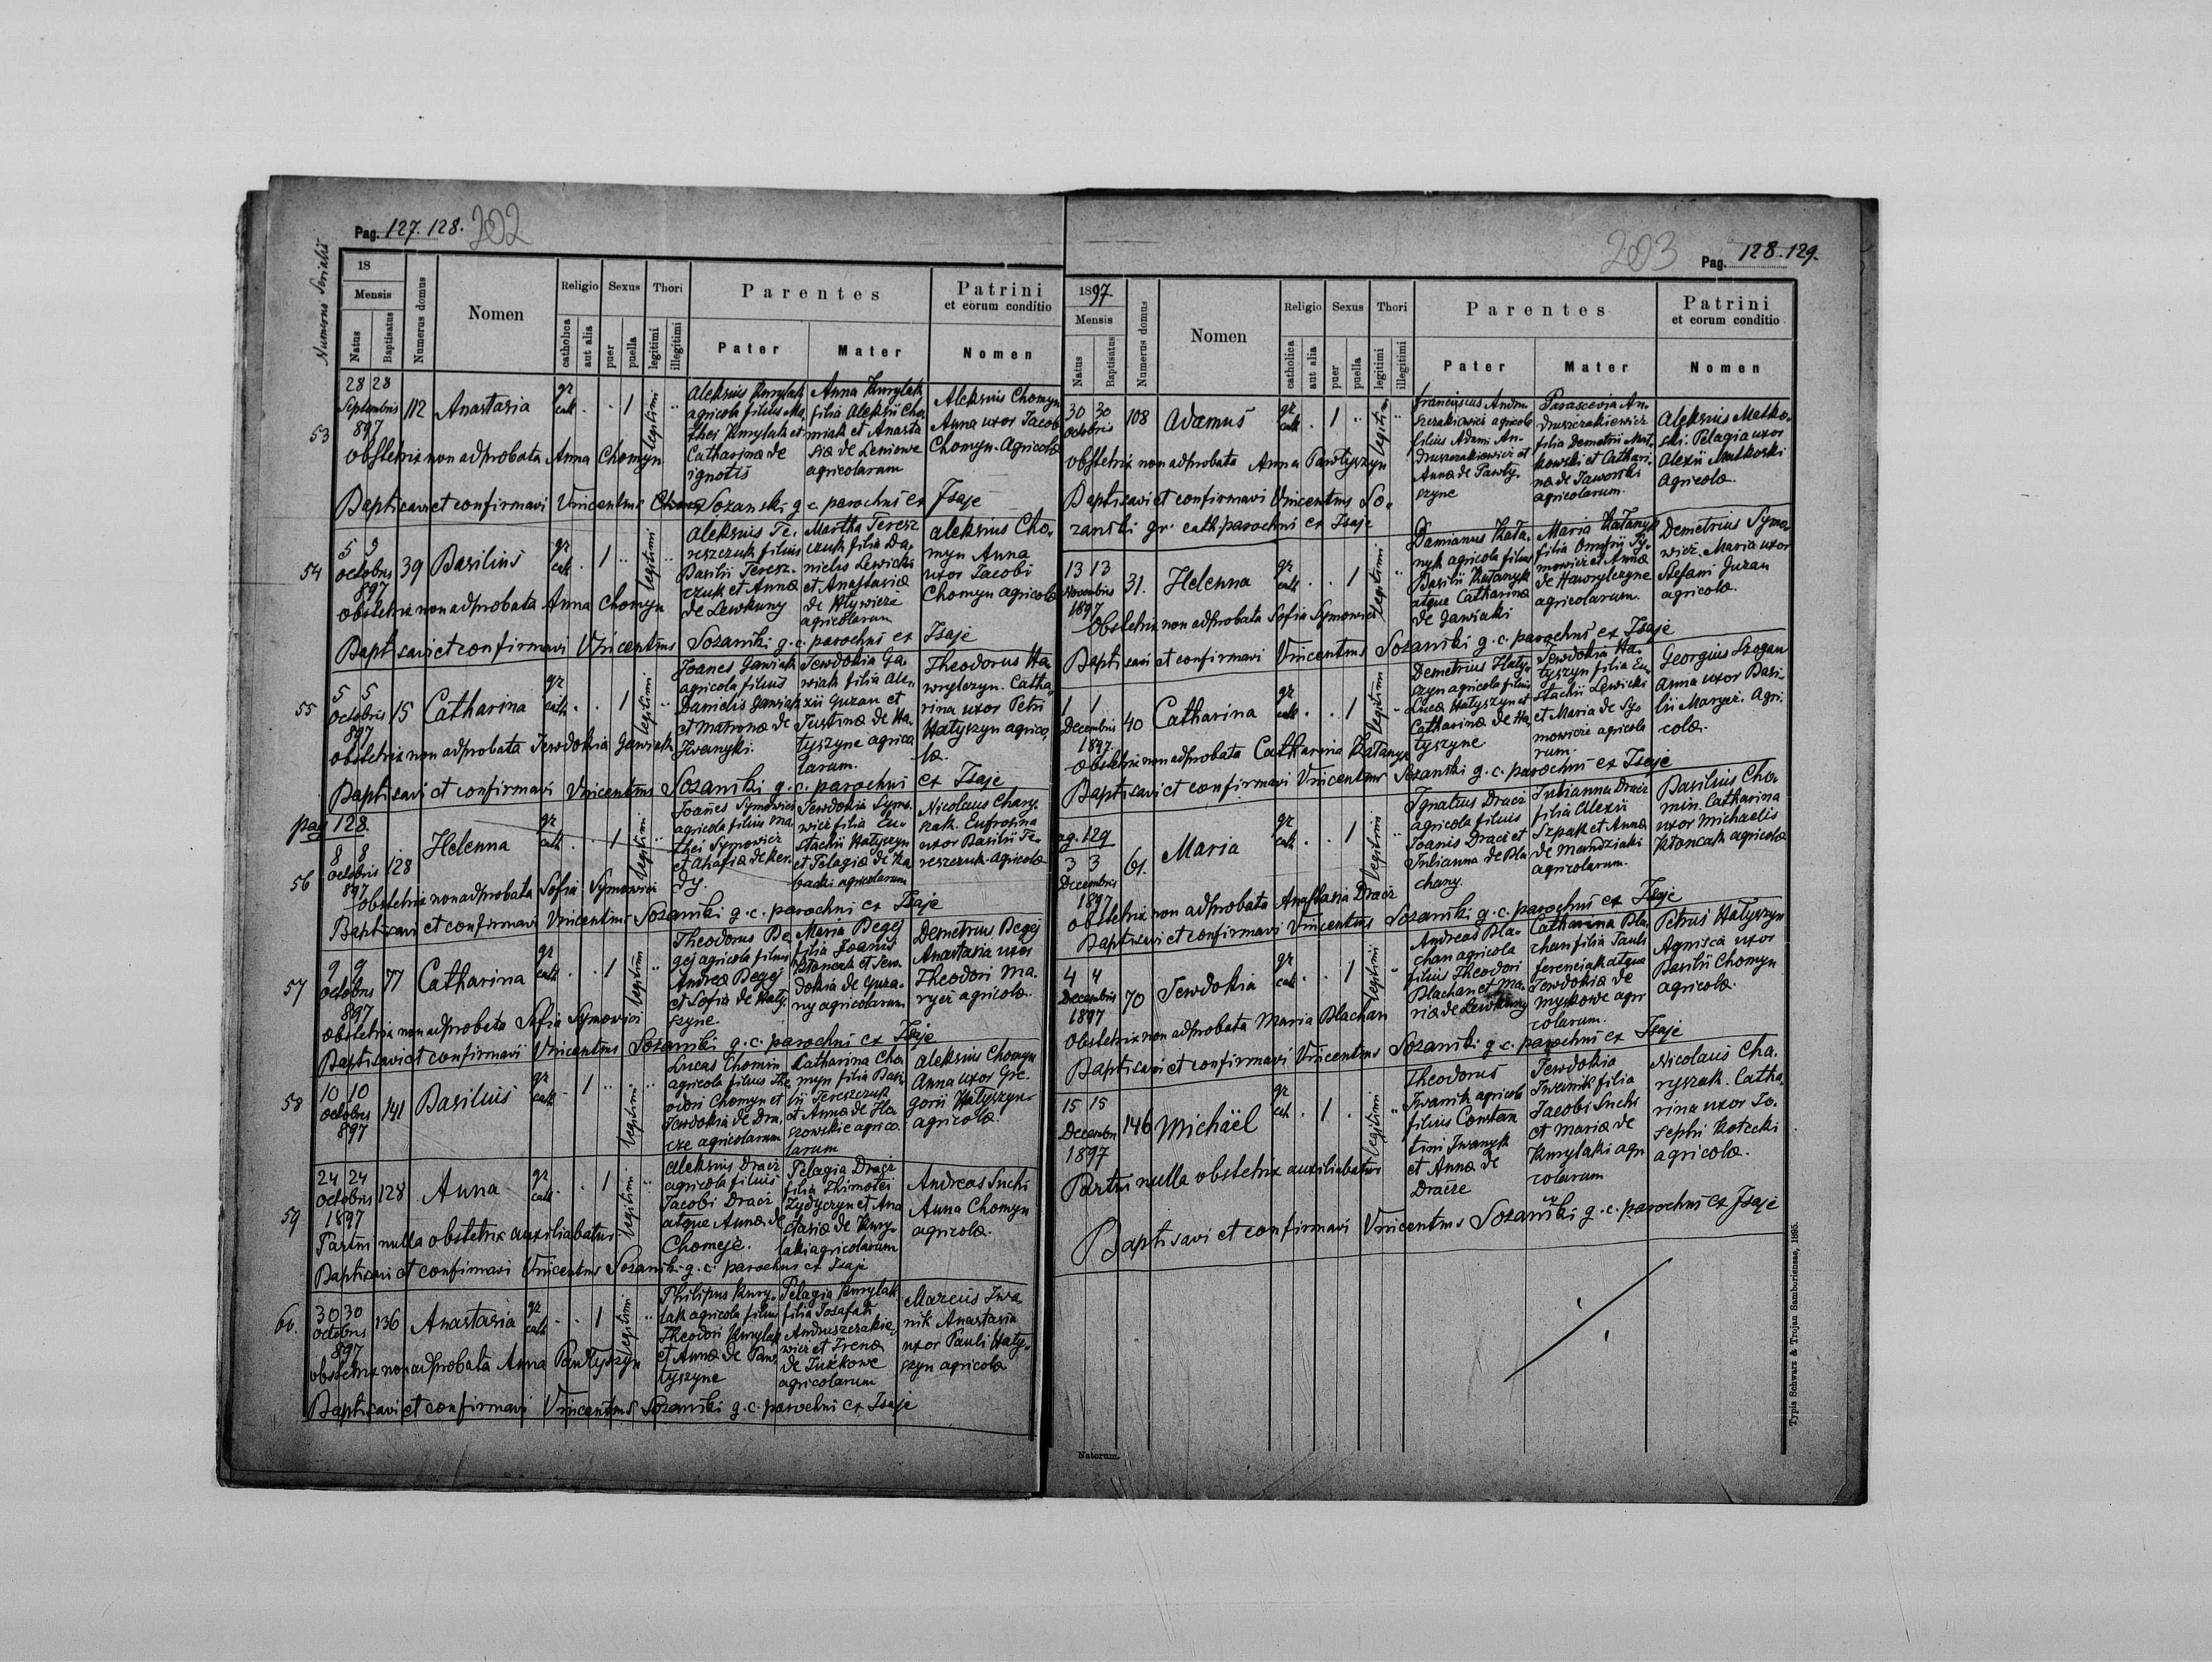 Pag. 127. 128. 202
Numerus Serialis
18
Mensis
Natus
Baptisatus
Numerus domus
Nomen
Religio
catholica
aut alia
Sexus
puer
puella
Thori
legitimi
illegitimi
Parentes
Pater
Mater
Patrini
et eorum conditio
Nomen
53
28 28
Septembris
897
112
Anastasia
gr
cath
1
legitimi
Aleksius Kurylak
agricola filius Ma
thei Kurylak et
Catharinæ de
ignotis
Anna Kurylak
filia Aleksii Cho
miak et Anasta
siæ de Leniowe
agricolarum
Aleksius Chomyn
Anna uxor Jacob
Chomyn. Agricolæ
Obstetrix non adprobata Anna Chomyn
Baptisavi et confirmavi Vincentius Sozanski g c parochus ex Isaje
54
5 5
octobris
897
39
Basilius
gr
cath
1
legitimi
Aleksius Te-
reszczuk filius
Basilii Teresz-
czuk et Annæ
de Lewkuny
Martha Teresz
czuk filia Da-
nielis Lewicki
et Anastasiæ
de Hływicze
agricolarum
Aleksius Cho-
myn Anna
uxor Jacobi
Chomyn agricolæ
obstetrix non adprobata Anna Chomyn
Baptisavi et confirmavi Vincentius Sozański g. c. parochus ex Isaje
55
5 5
octobris
897
15
Catharina
gr
cath
1
legitimi
Joanes Gawiak
agricola filius
Danielis Gawiak
et Matronæ de
Iwanyki.
Jewdokia Ga-
wiak filia Ale-
xii Guzan et
Justinæ de Ha-
tyszyne agrico
larum.
Theodorus Ha-
wrylczyn. Catha
rina uxor Petri
Hatyszyn agrico
læ.
obstetrix non adprobata Jewdokia Gawiak
Baptisavi et confirmavi Vincentius Sozański g. c. parochus ex Isaje
pag 128.
56
8 8
octobris
897
128
Helenna
gr
cath
1
legitimi
Joanes Symowicz
agricola filius Ma
thei Symowicz
et Ahafiæ de Ker-
dy.
Jewdokia Symo-
wicz filia Eu-
stachii Hatyszyn
et Pelagiæ de Ka
backi agricolarum
Nicolaus Chary
szak. Eufrosina
uxor Basilii Te-
reszczuk-agricolæ
Obstetrix non adprobata Sofia Symowicz
Baptisavi et confirmavi Vincentius Sozański g. c. parochus ex Isaje
57
9 9
octobris
897
77
Catharina
gr
cath
1
legitimi
Theodorus Be
gej agricola filius
Andreæ Begej
et Sofiæ de Haty
szyne
Maria Begej
filia Joanis
Kłoncak et Jew-
dokiæ de Guza-
ny agricolarum
Demetrius Begej
Anastasia uxor
Theodori Ma-
rycz agricolæ.
obstetrix non adprobata Sofia Symowicz
Baptisavi et confirmavi Vincentius Sozański g. c. parochus ex Isaje
58
10 10
octobris
897
141
Basilius
gr
cath
1
legitimi
Lucas Chomin
agricola filius The
odori Chomyn et
Jewdokiæ de Dra-
cze agricolarum
Katharina Cho-
myn filia Basi-
lii Tereszczuk
et Annæ de Ha
szowskie agrico
larum
Aleksius Chomyn
Anna uxor Gre-
gorii Hatyszyn-
agricolæ.
59
24 24
octobris
1897
128
Anna
gr
cath
1
legitimi
Aleksius Dracz
agricola filius
Jacobi Dracz
atque Annæ de
Chomeje.
Pelagia Dracz
filia Thimotei
Zydyczyn et Ana
stasiæ de Kury-
laki agricolarum
Andreas Suchi
Anna Chomyn
agricolæ.
Partui nulla obstetrix auxiliabatur
Baptisavi et confirmavi Vincentius Sozański g. c. parochus ex Isaje
60.
30 30
octobris
897
136
Anastasia
gr
cath
1
legitimi
Philipus Kury-
lak agricola filius
Theodori Kurylak
et Annæ de Paw
tyszyne
Pelagia Kurylak
filia Josafati
Andruszczakie
wicz et Irenæ
de Tużkowe
agricolarum
Marcus Iwa
nik Anastasia
uxor Pauli Haty-
szyn agricolæ
obstetrix non adprobata Anna Pawtyszyn
Baptisavi et confirmavi Vincentius Sozański g. c. parochus ex Isaje
203 Pag. 128.-129.
1897
Mensis
Natus
Baptisatus
Numerus domus
Nomen
Religio
catholica
aut alia
Sexus
puer
puella
Thori
legitimi
illegitimi
Parentes
Pater
Mater
Patrini
et eorum conditio
Nomen
30 30
octobris
108
Adamus
gr
cath
1
legitimi
Franciscus Andru
szczakiewicz agricola
filius Adami An-
druszczakiewicz et
Annæ de Pawty-
szyne
Parascevia An-
druszczakiewicz
filia Demetrii Mat-
kowski et Cathari-
næ de Jaworski
agricolarum.
Aleksius Matko-
ski. Pelagia uxor
Alexii Matkoski
Agricolæ.
Obstetrix non adprobata Anna Pawtyszyn
Baptisavi et confirmavi Vincentius So-
zański gr. cath parochus ex Isaje
13 13
Novembris
1897
31.
Helenna
gr
cath
1
legitimi
Damianus Kała-
nyk agricola filius
Basilii Kałanyk
atque Catharinæ
de Gawiaki
Maria Kałanyk
filia Onufrii Sy-
mowicz et Annæ
de Hawrylczyne
agricolarum.
Demetrius Symo-
wicz. Maria uxor
Stefani Guzan
agricolæ.
Obstetrix non adprobata Sofia Symowicz
Baptisavi et confirmavi Vincentius Sozański g. c. parochus ex Isaje
1 1
Decembris
1897.
40
Catharina
gr
cath
1
legitimi
Demetrius Haty-
szyn agricola filius
Lucæ Hatyszyn et
Catharinæ de Ha-
tyszyne
Jewdokia Ha-
tyszyn filia Eu-
stachii Lewicki
et Mariæ de Sy-
mowicze agricola
rum.
Georgius Szogan
Anna uxor Basi-
lii Marycz. Agri-
colæ.
Obstetrix non adprobata Catharina Kałanyk
Baptisavi et confirmavi Vincentius Sozański g. c. parochus ex Isaje
ag. 129
3 3
Decembris
1897
61.
Maria
gr
cath
1
legitimi
Ignatius Dracz
agricola filius
Joanis Dracz et
Julianna de Bla
chany.
Julianna Dracz
filia Alexii
Szpak et Annæ
de Mandziaki
agricolarum.
Basilius Cho-
min. Catharina
uxor Michaelis
Kłoncak agricolæ
obstetrix non adprobata Anastasia Dracz
Baptisavi et confirmavi Vincentius Sozański g. c. parochus ex Isaje
4 4
Decembris
1897
70
Jewdokia
gr
cath
1
legitimi
Andreas Bla-
chan agricola
filius Theodori
Blachan et Ma-
riæ de Lewkuny
Catharina Bla-
chan filia Pauli
ferenciak atque
Jewdokiæ de
Myskowe agri
colarum.
Petrus Hatyszyn
Agnisca uxor
Basilii Chomyn
agricolæ.
Obstetrix non adprobata Maria Blachan
Baptisavi et confirmavi Vincentius Sozański g. c. parochus ex Isaje
15 15
Decembri
1897
146
Michäel
gr
cath
1
legitimi
Theodorus
Iwanik agricola
filius Constan
tini Iwanyk
et Annæ de
Dracze
Jewdokia
Iwanik filia
Jacobi Suchi
et Mariæ de
Kurylaki agri
colarum
Nicolaus Cha-
ryszak. Catha-
rina uxor Jo-
sephi Kotecki
agricolæ.
Partui nulla obstetrix auxiliabatur
Baptisavi et confirmavi Vincentius Sozański g. c. parochus ex Isaje
Natorum.
Typis Schwarz & Trojan Samboriensae, 1895.